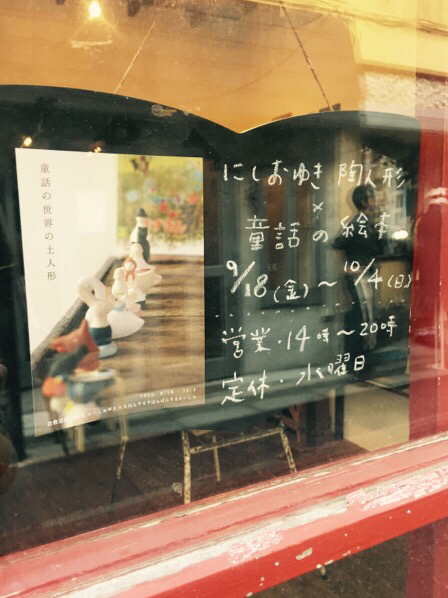 童話の世界の土人形
にしおゆき 陶人形
×
童話の絵本
9/18(金)〜10/4(日)
営業・14時〜20時
定休・水曜日